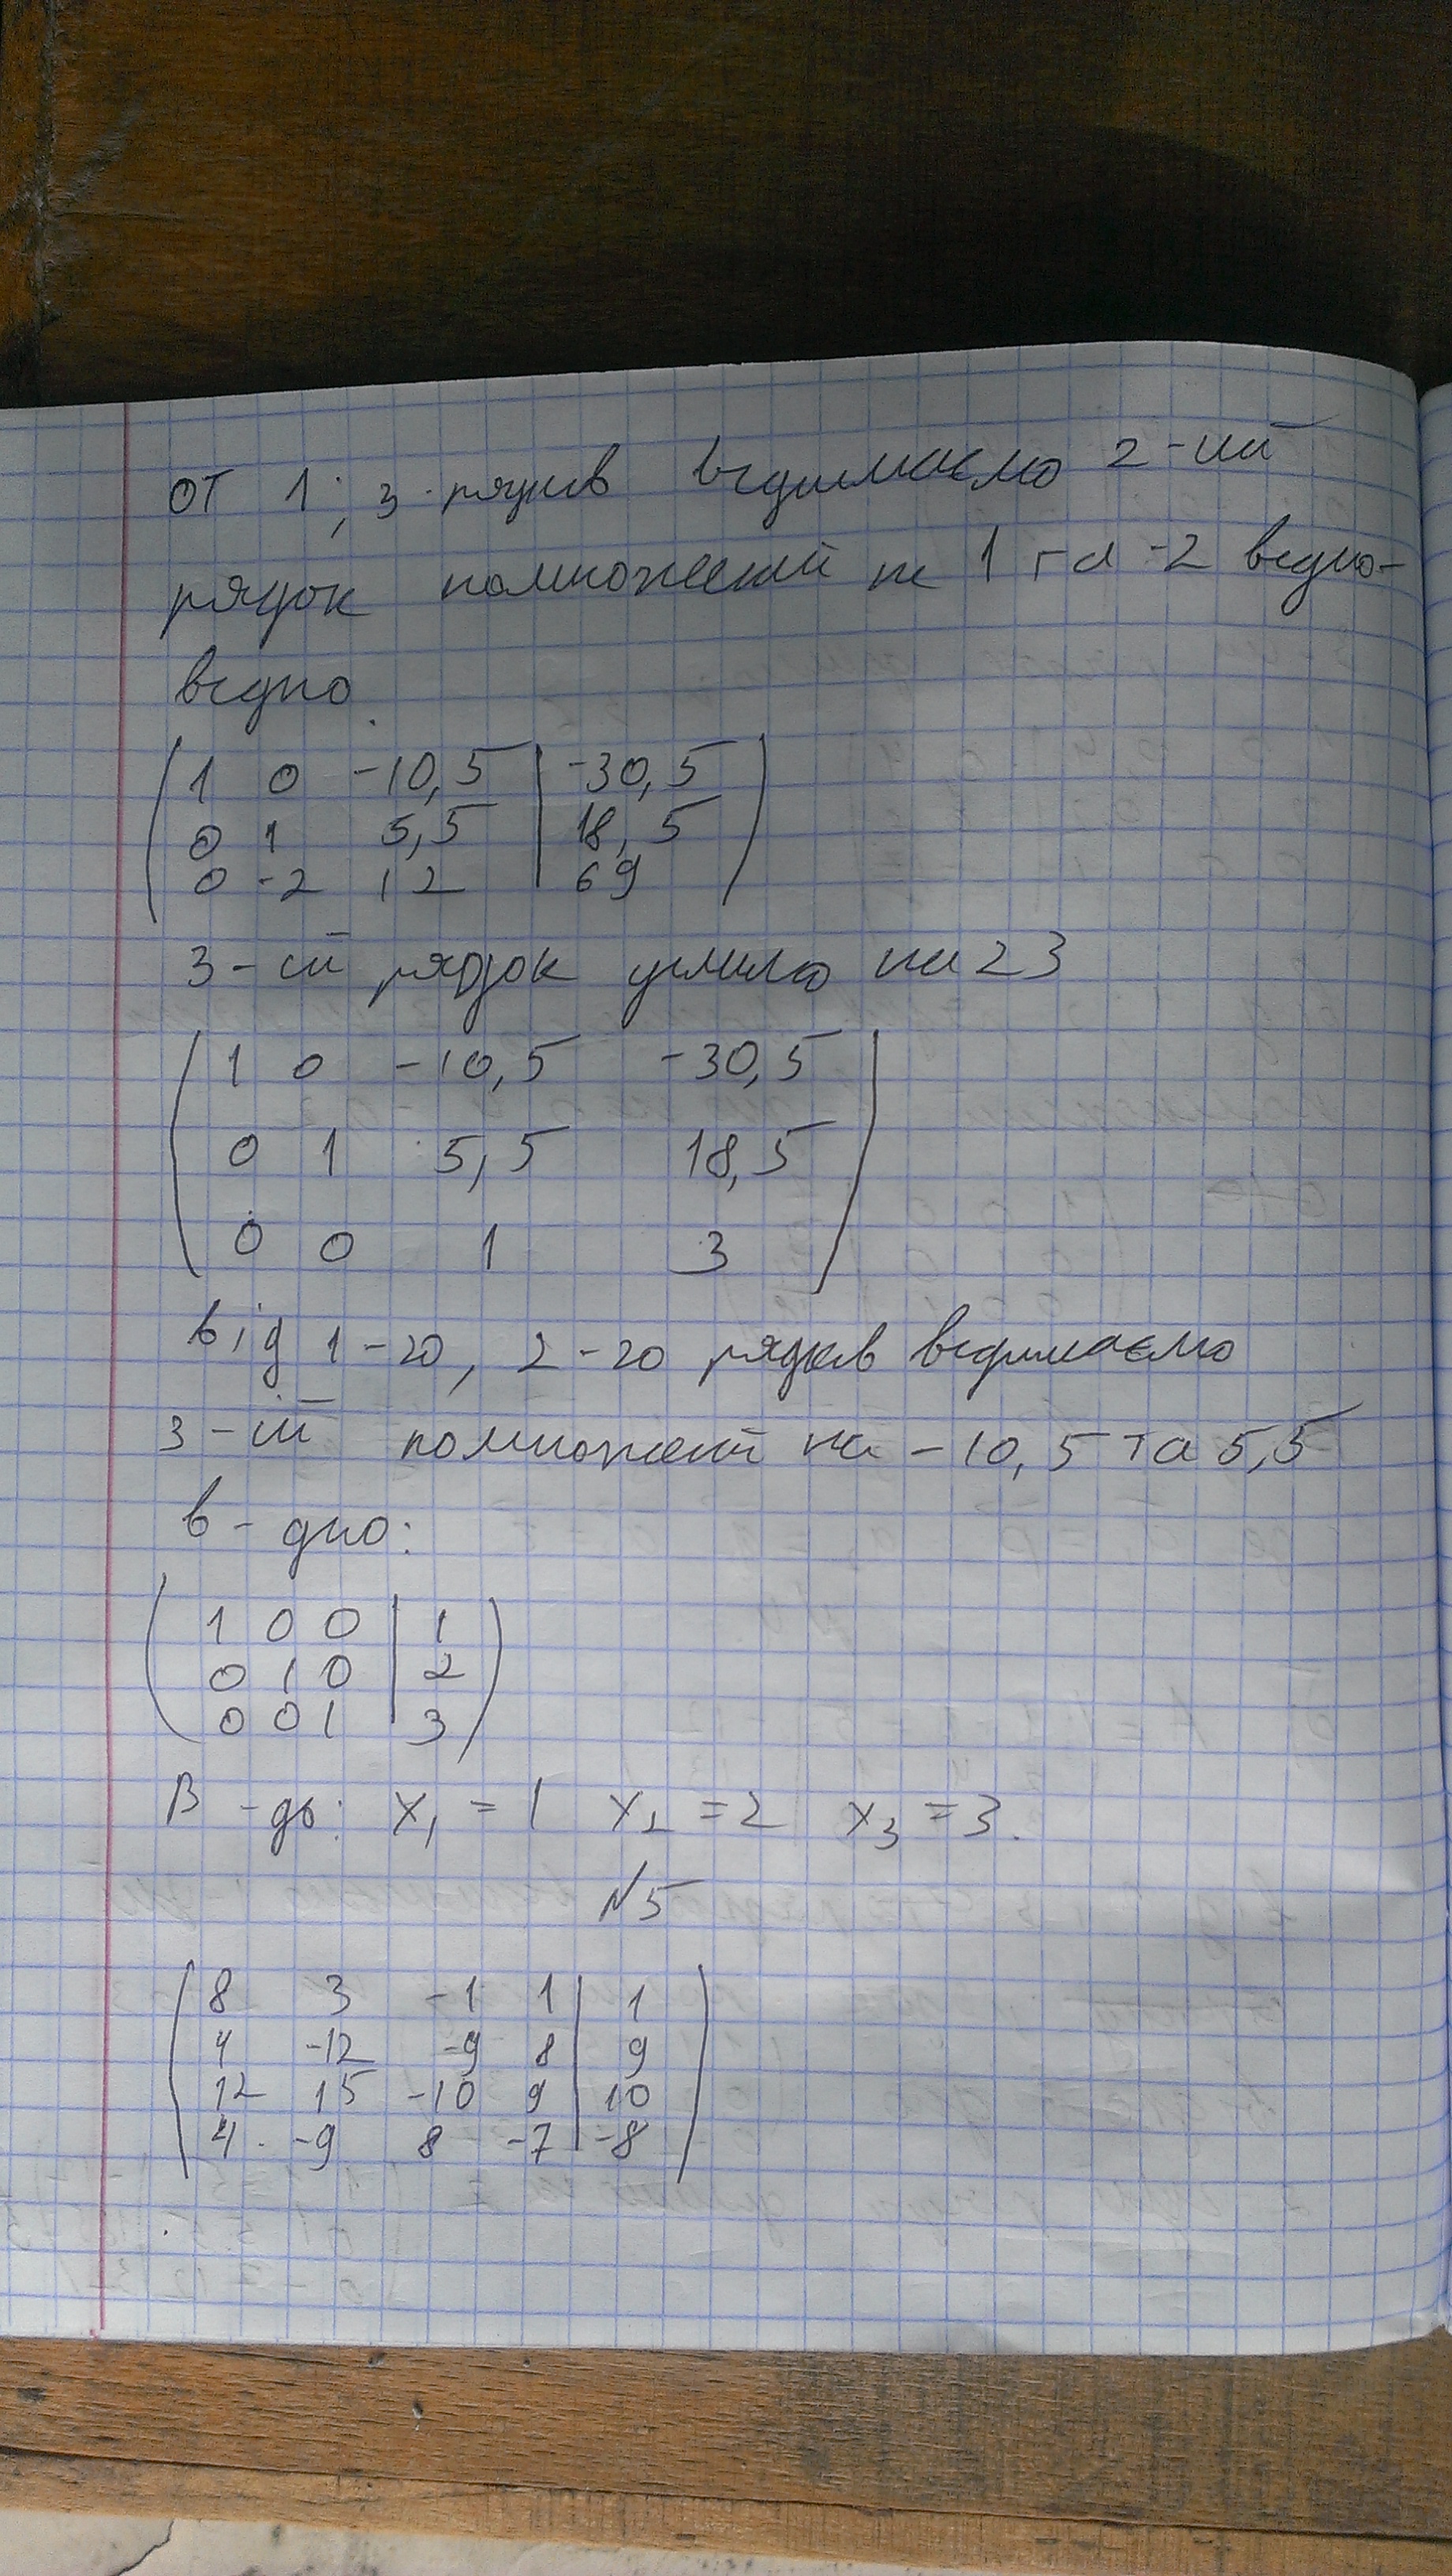 от 1; 3 рядків віднімаємо 2-ий
рядок помножений на 1 та -2 відпо-
відно.
1 0 -10,5 | -30,5
0 1 5,5 | 18,5
0 -2 12 | 69
3-ій рядок ділимо на 23
1 0 -10,5 -30,5
0 1 5,5 18,5
0 0 1 3
від 1-го, 2-го рядків віднімаємо
3-ій помножений на -10,5 та 5,5
в-дно:
1 0 0 | 1
0 1 0 | 2
0 0 1 | 3
В-дь: x₁ = 1 x₂ = 2 x₃ = 3.
№5
8 3 -1 1 | 1
4 -12 -9 8 | 9
12 15 -10 9 | 10
4 -9 8 -7 | -8